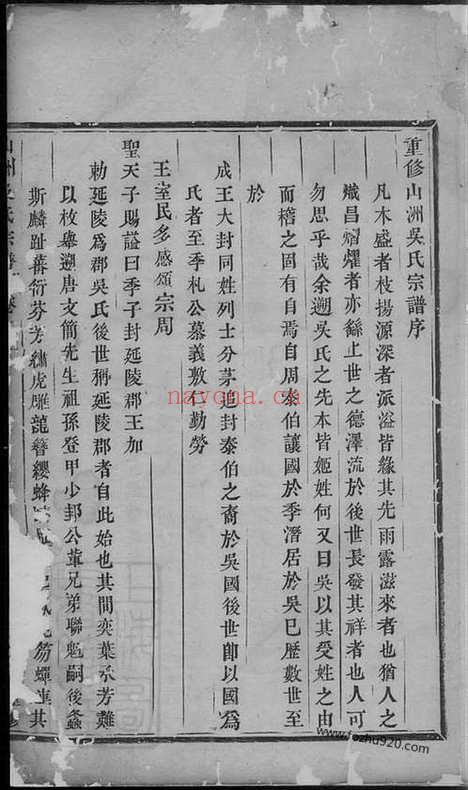 重修山洲吳氏宗譜序
凡木盛者枝揚源深者派溢皆緣其先雨露滋來者也猶人之
熾昌熠燿者亦繇上世之德澤流於後世長發其祥者人可
勿思乎哉余遡吳氏之先本皆姬姓何又曰吳以其受姓之由
而稽之固有自焉自周泰伯讓國於季潛居於吳已歷數世至
於
成王大封同姓列士分茅追封泰伯之裔於吳國後世卽以國為
氏者至季札公慕義敷仁勤勞
王室民多感頌宗周
聖天子賜謚曰季子封延陵郡王加
勅延陵為郡吳氏後世稱延陵郡者自此始也其間奕葉承芳難
以枚舉遡唐文簡先生祖孫登甲少邦公輩兄弟聯魁嗣後螽
斯麟趾蕃衍芬芳繡虎雕龍簪纓蜂
笏蟬連其
洲吳氏宗譜
nayona.cn
www.fozhu920.com